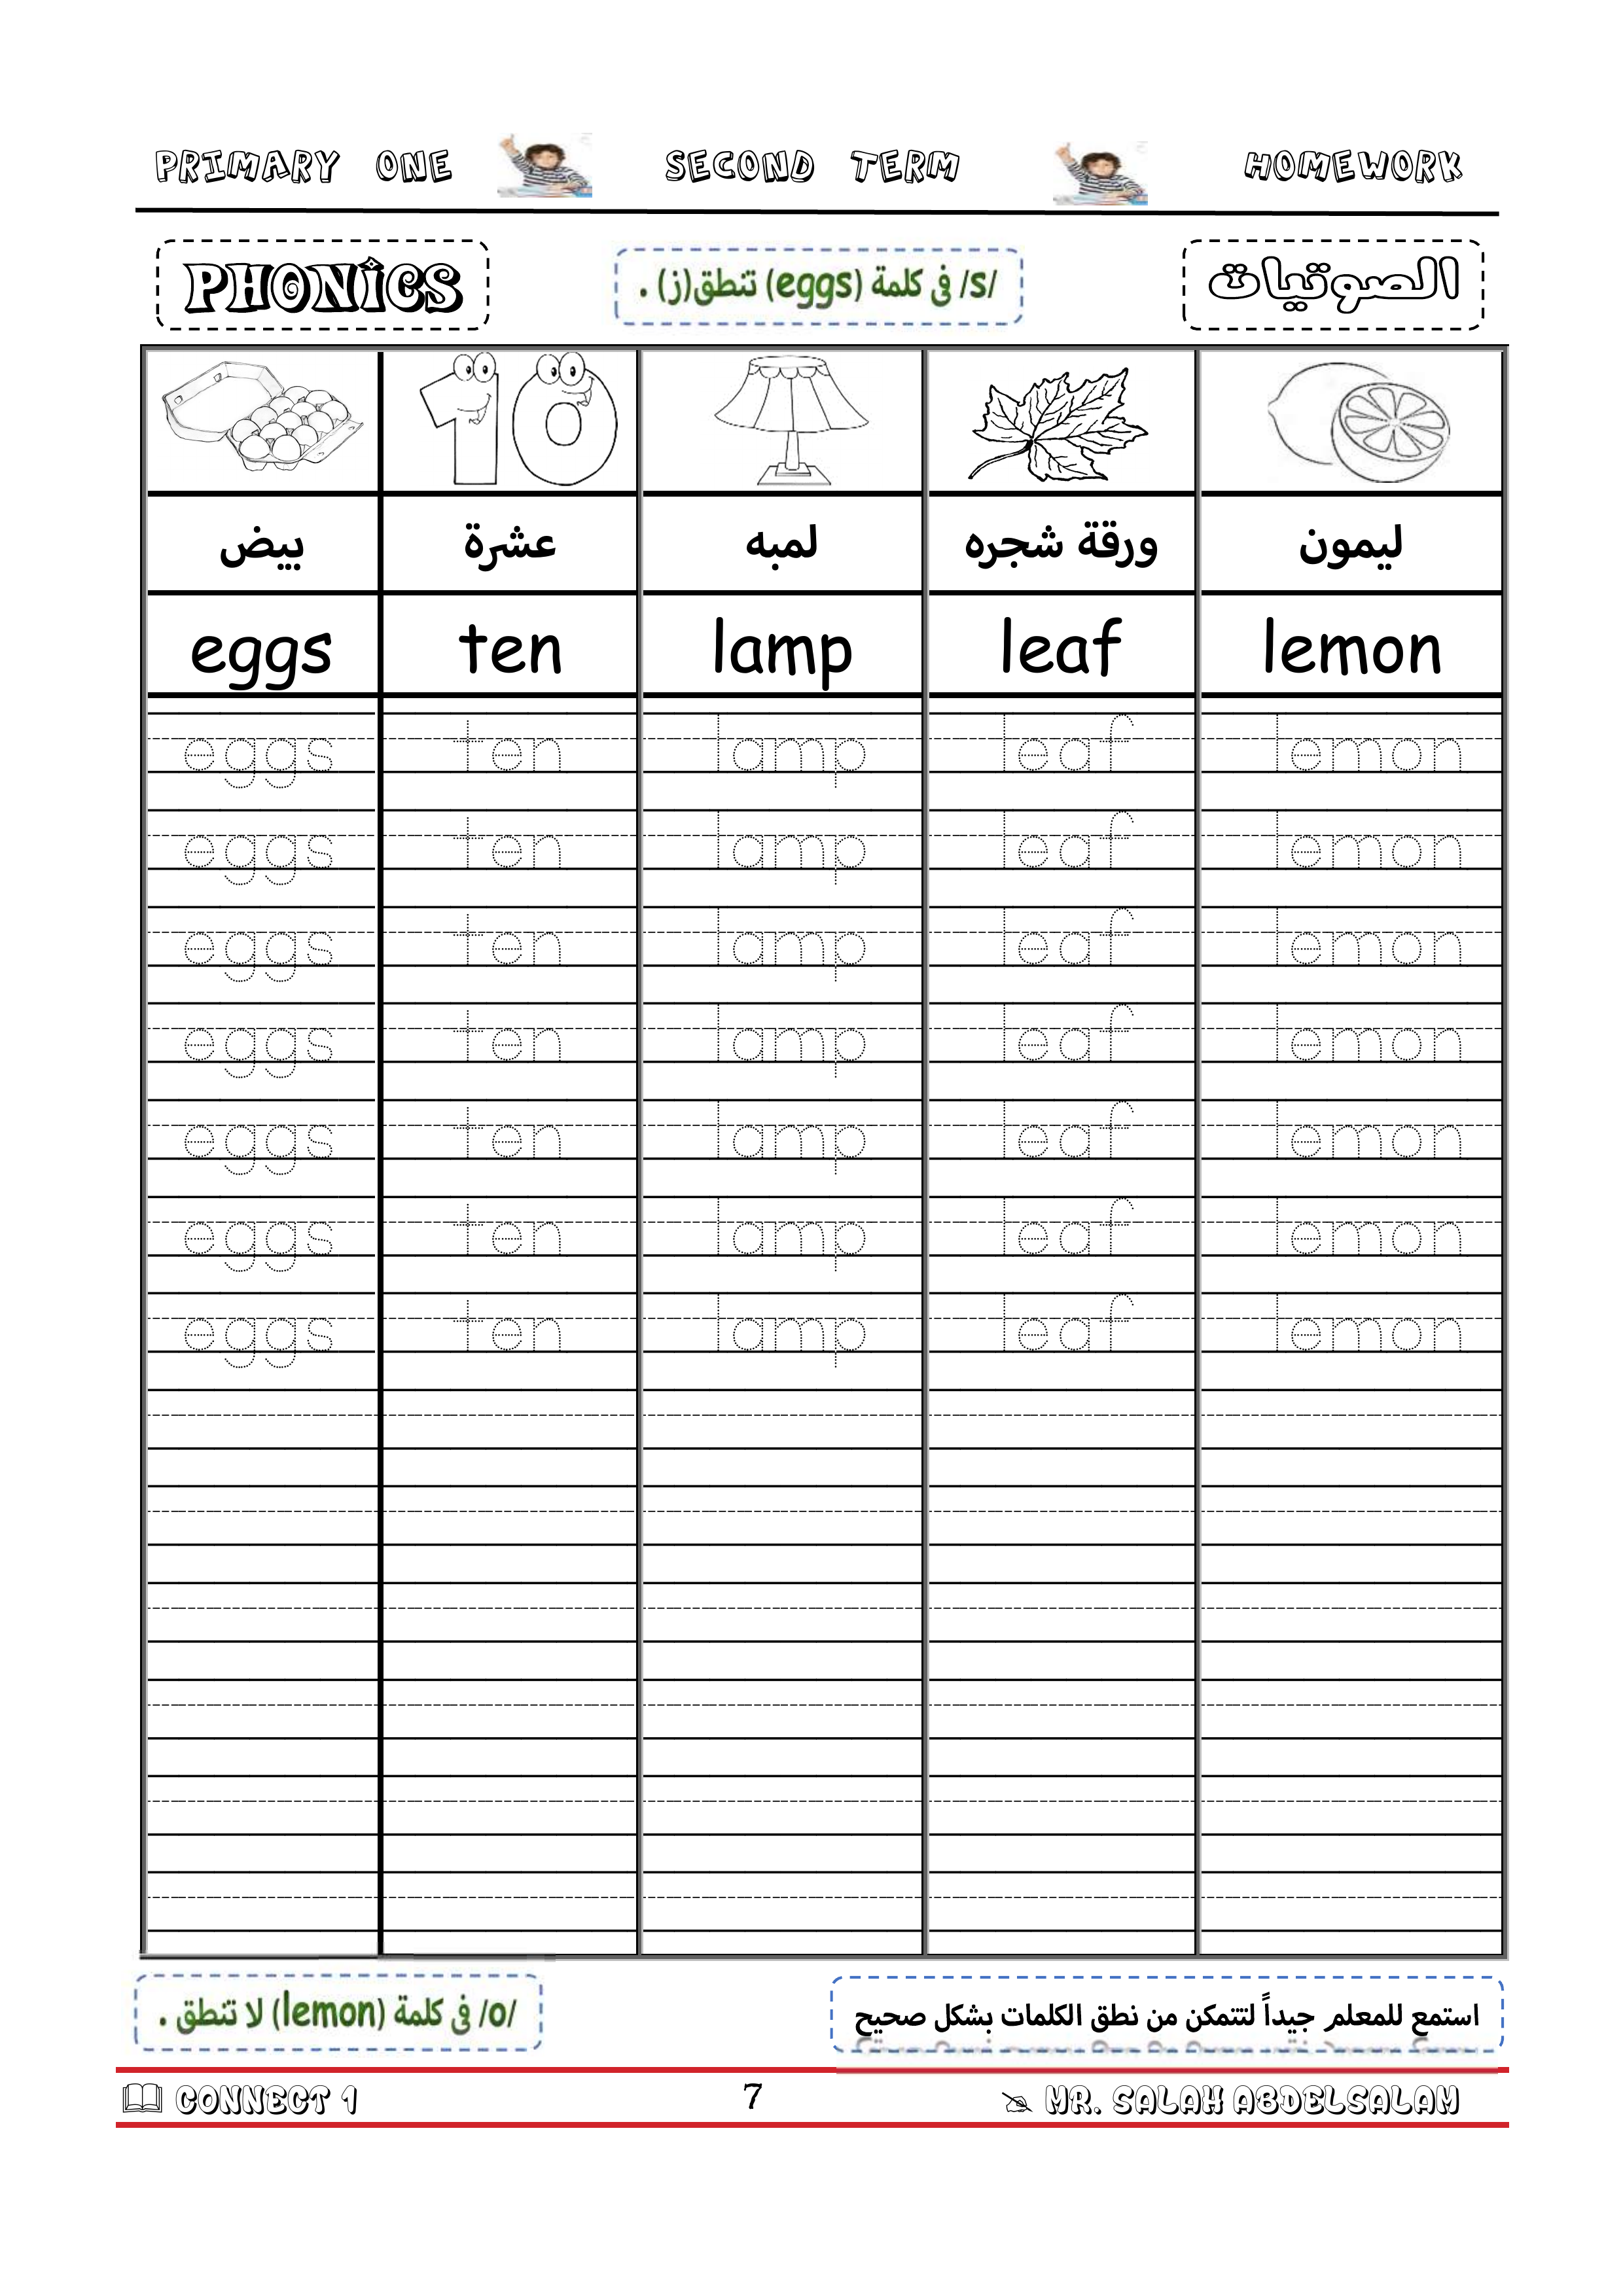 PRIMARY ONE SECOND TERM HOMEWORK
PHONICS /s/ فى كلمة (eggs) تنطق(ز) . الصوتيات
10
بيض عشرة لمبه ورقة شجره ليمون
eggs ten lamp leaf lemon
eggs ten lamp leaf lemon
eggs ten lamp leaf lemon
eggs ten lamp leaf lemon
eggs ten lamp leaf lemon
eggs ten lamp leaf lemon
eggs ten lamp leaf lemon
eggs ten lamp leaf lemon
/o/ فى كلمة (lemon) لا تنطق . استمع للمعلم جيداً لتتمكن من نطق الكلمات بشكل صحيح
CONNECT 1 7 MR. SALAH ABDELSALAM